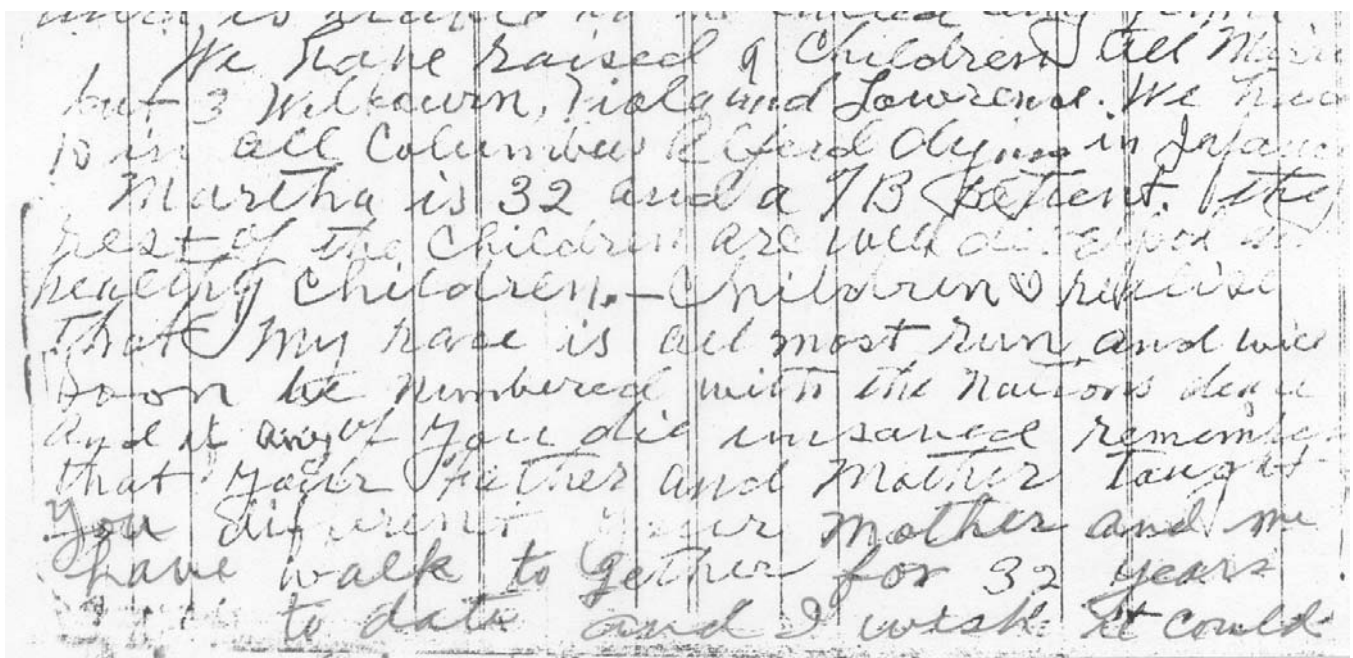 We have raised 9 Children all
but 3 Wilbourn, Viola and Lawrence. We
10 in all Columbus Alferd dying in
Martha is 32 and a TB patient. the
rest of the Children are well
healthy Children. - Children I realise
that my race is all most run and will
soon be numbered with the Nations dead
and if any of you die unsaved remember
that your Father and Mother taught
You your mother and me
have walk to gether for 32 years
to date and I wish it could